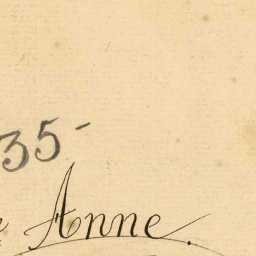 35-
Anne.